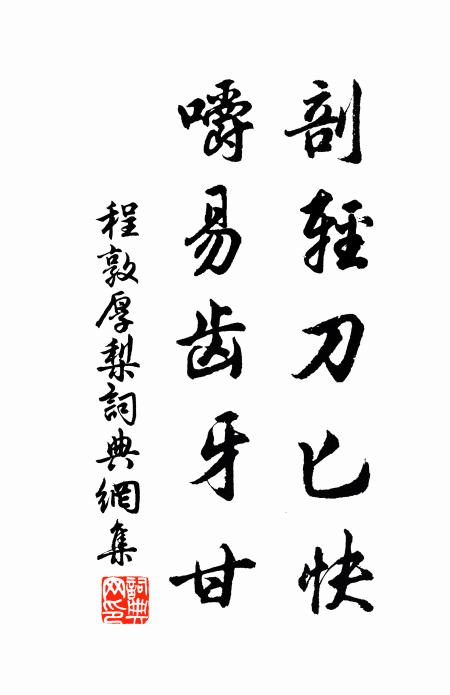 剖輕刀匕快
嚼易齿牙甘
程敦厚梨詞典網集
詞典網印